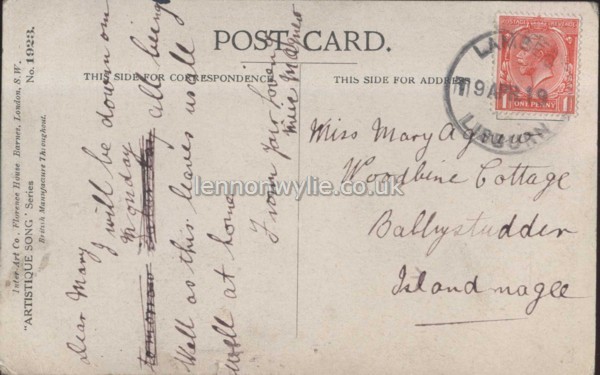 POST CARD.
THIS SIDE FOR CORRESPONDENCE
THIS SIDE FOR ADDRESS
Inter-Art Co., Florence House, Barnes, London, S.W.
"ARTISTIQUE SONG" Series
British Manufacture Throughout.
No. 1923.
Dear Mary
I will be down on
Monday
tomorrow all being
Well as this leaves us all
well at home
From your lovin
niece
LAMBE
9 APR 19
LISBURN
POSTAGE REVENUE
ONE PENNY
Miss Mary
Woodbine Cottage
Ballystudder
Island magee
lennonwylie.co.uk